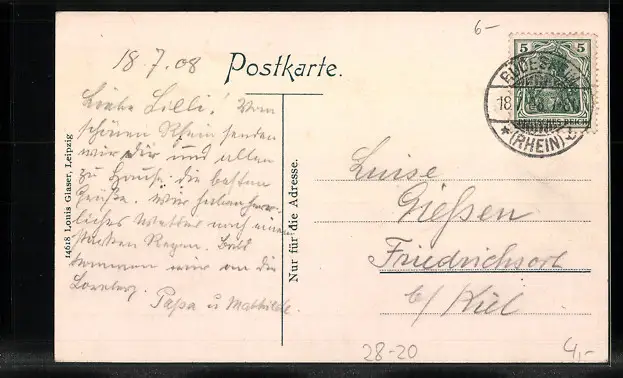 6-
18.7.08
Postkarte.
5 5
RÜDESHEIM
18. 7. 08
* (RHEIN)
Liebe Lilli! Vom
schönen Rhein senden
wir Dir und allen
zu Hause die besten
Grüße. Wir haben herr-
liches Wetter nach einem
starken Regen. Bald
kommen wir an die
Loreley.
Papa u Mathilde.
14618 Louis Glaser, Leipzig
Nur für die Adresse.
Luise
Gießen
Friedrichsort
b/ Kiel
28-20
4,-